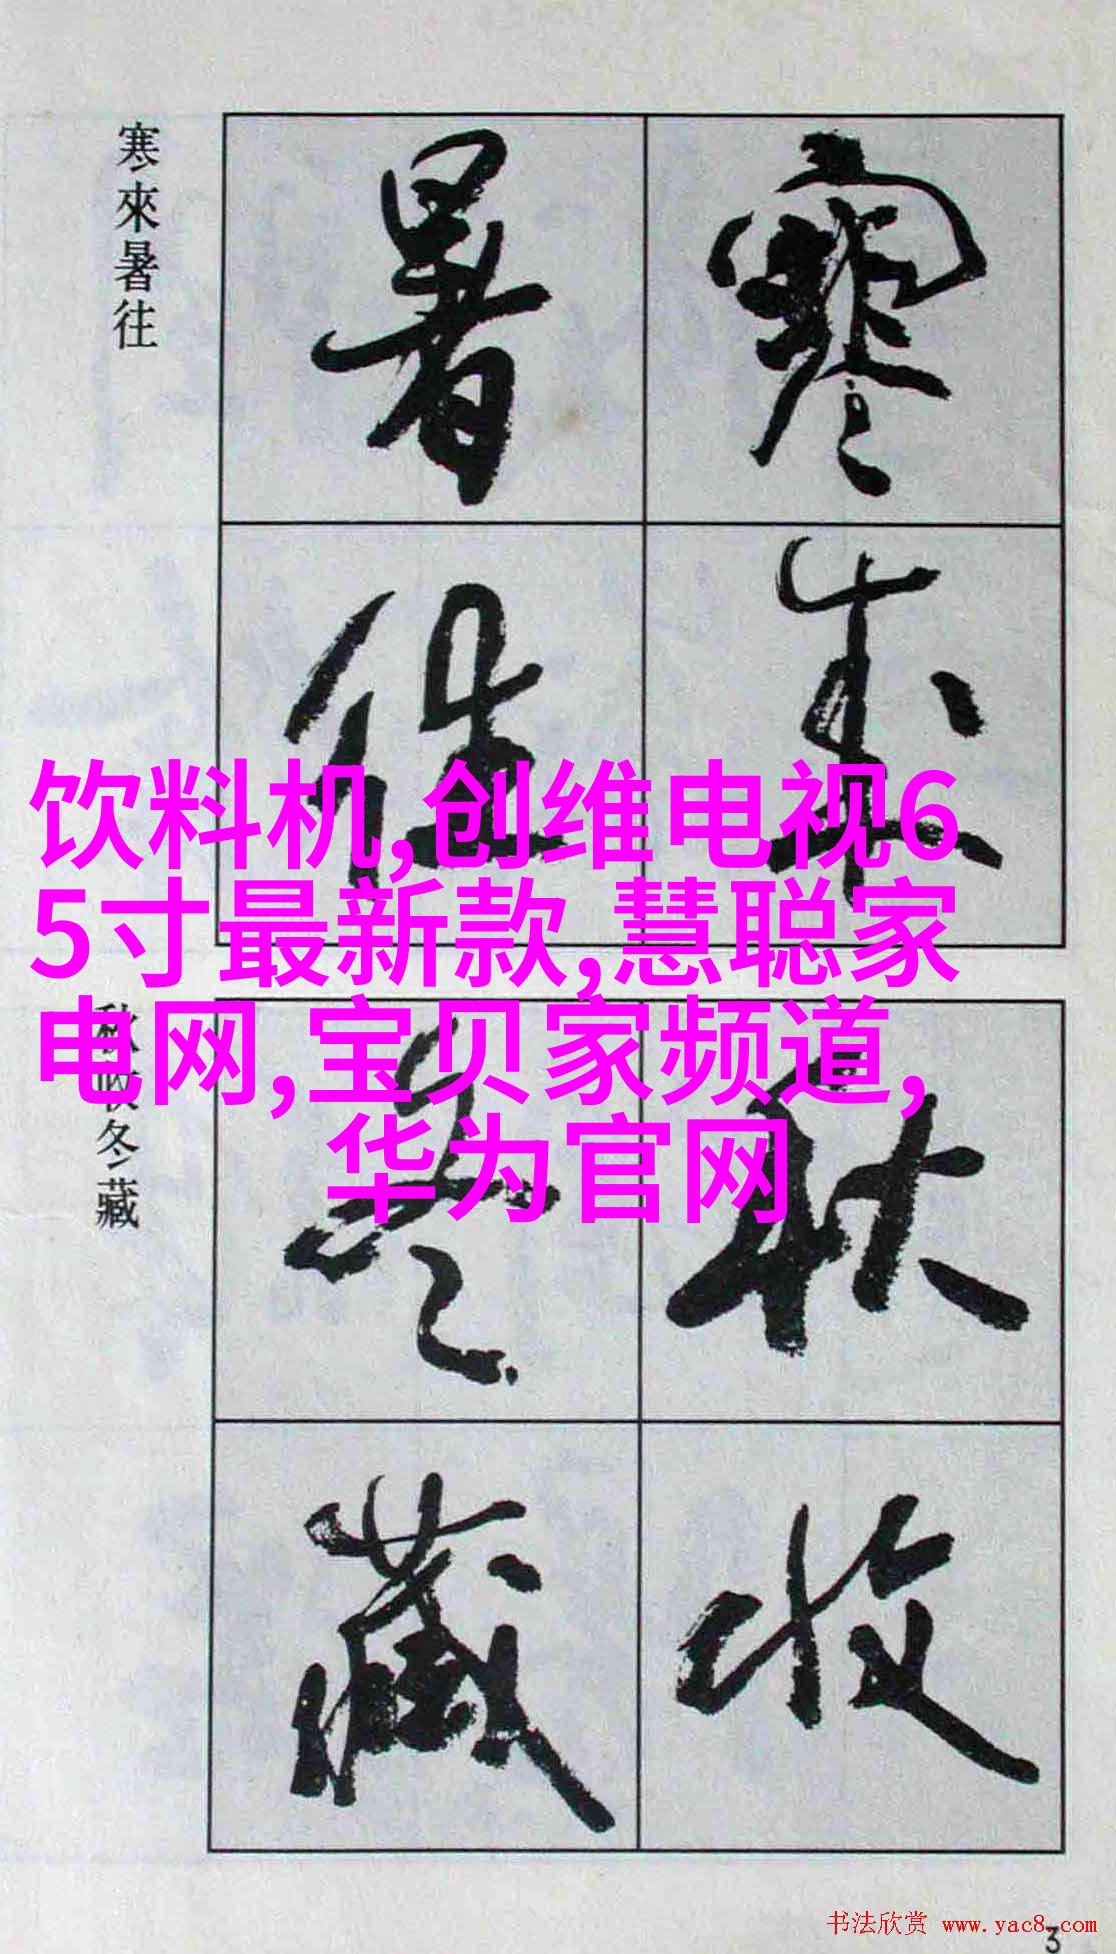 寒來暑往
寒來
暑往
饮料机,创维电视6
5寸最新款,慧聪家
电网,宝贝家频道,
华为官网
秋收冬藏
秋收
冬藏
书法欣赏 www.yac8.com
3